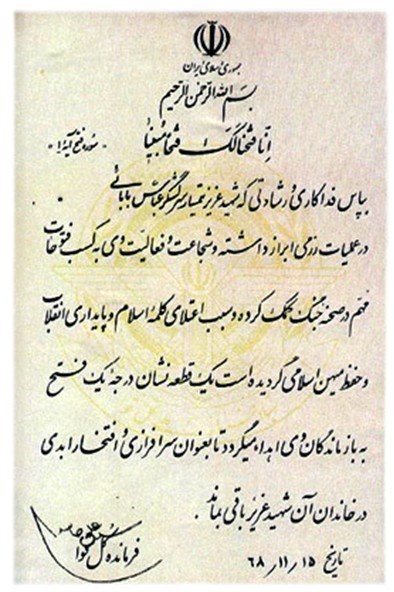 جمهوری اسلامی ایران
بسم الله الرحمن الرحیم
انا فتحنا لک فتحا مبینا
سوره فتح آیه ۱
بپاس فداکاری و رشادتی که شهید عزیز تیمسار سرلشگر عباس بابائی
در عملیات رزمی ابراز داشته و شجاعت و فعالیت وی به کسب فتوحات
مهم در صحنه جنگ کمک کرده و سبب اعتلای کلمه اسلام و پایداری انقلاب
و حفظ میهن اسلامی گردیده است یک قطعه نشان درجه یک فتح
به بازماندگان وی اهداء میگردد تا بعنوان سرافرازی و افتخار ابدی
در خاندان آن شهید عزیز باقی بماند
تاریخ ۶۸/۱۱/۱۵
فرمانده کل قوا